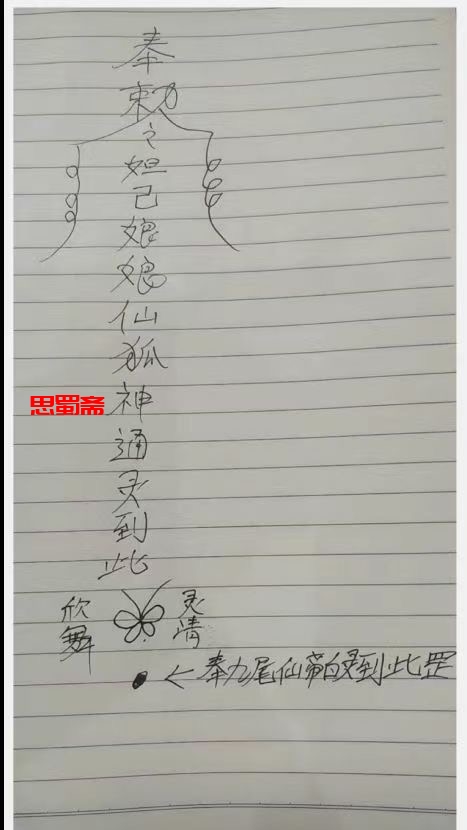 奉
勅
之
妲
己
娘
娘
仙
狐
神
通
灵
到
此
思蜀斋
欣舞
灵情
←奉九尾仙帝白灵到此罡